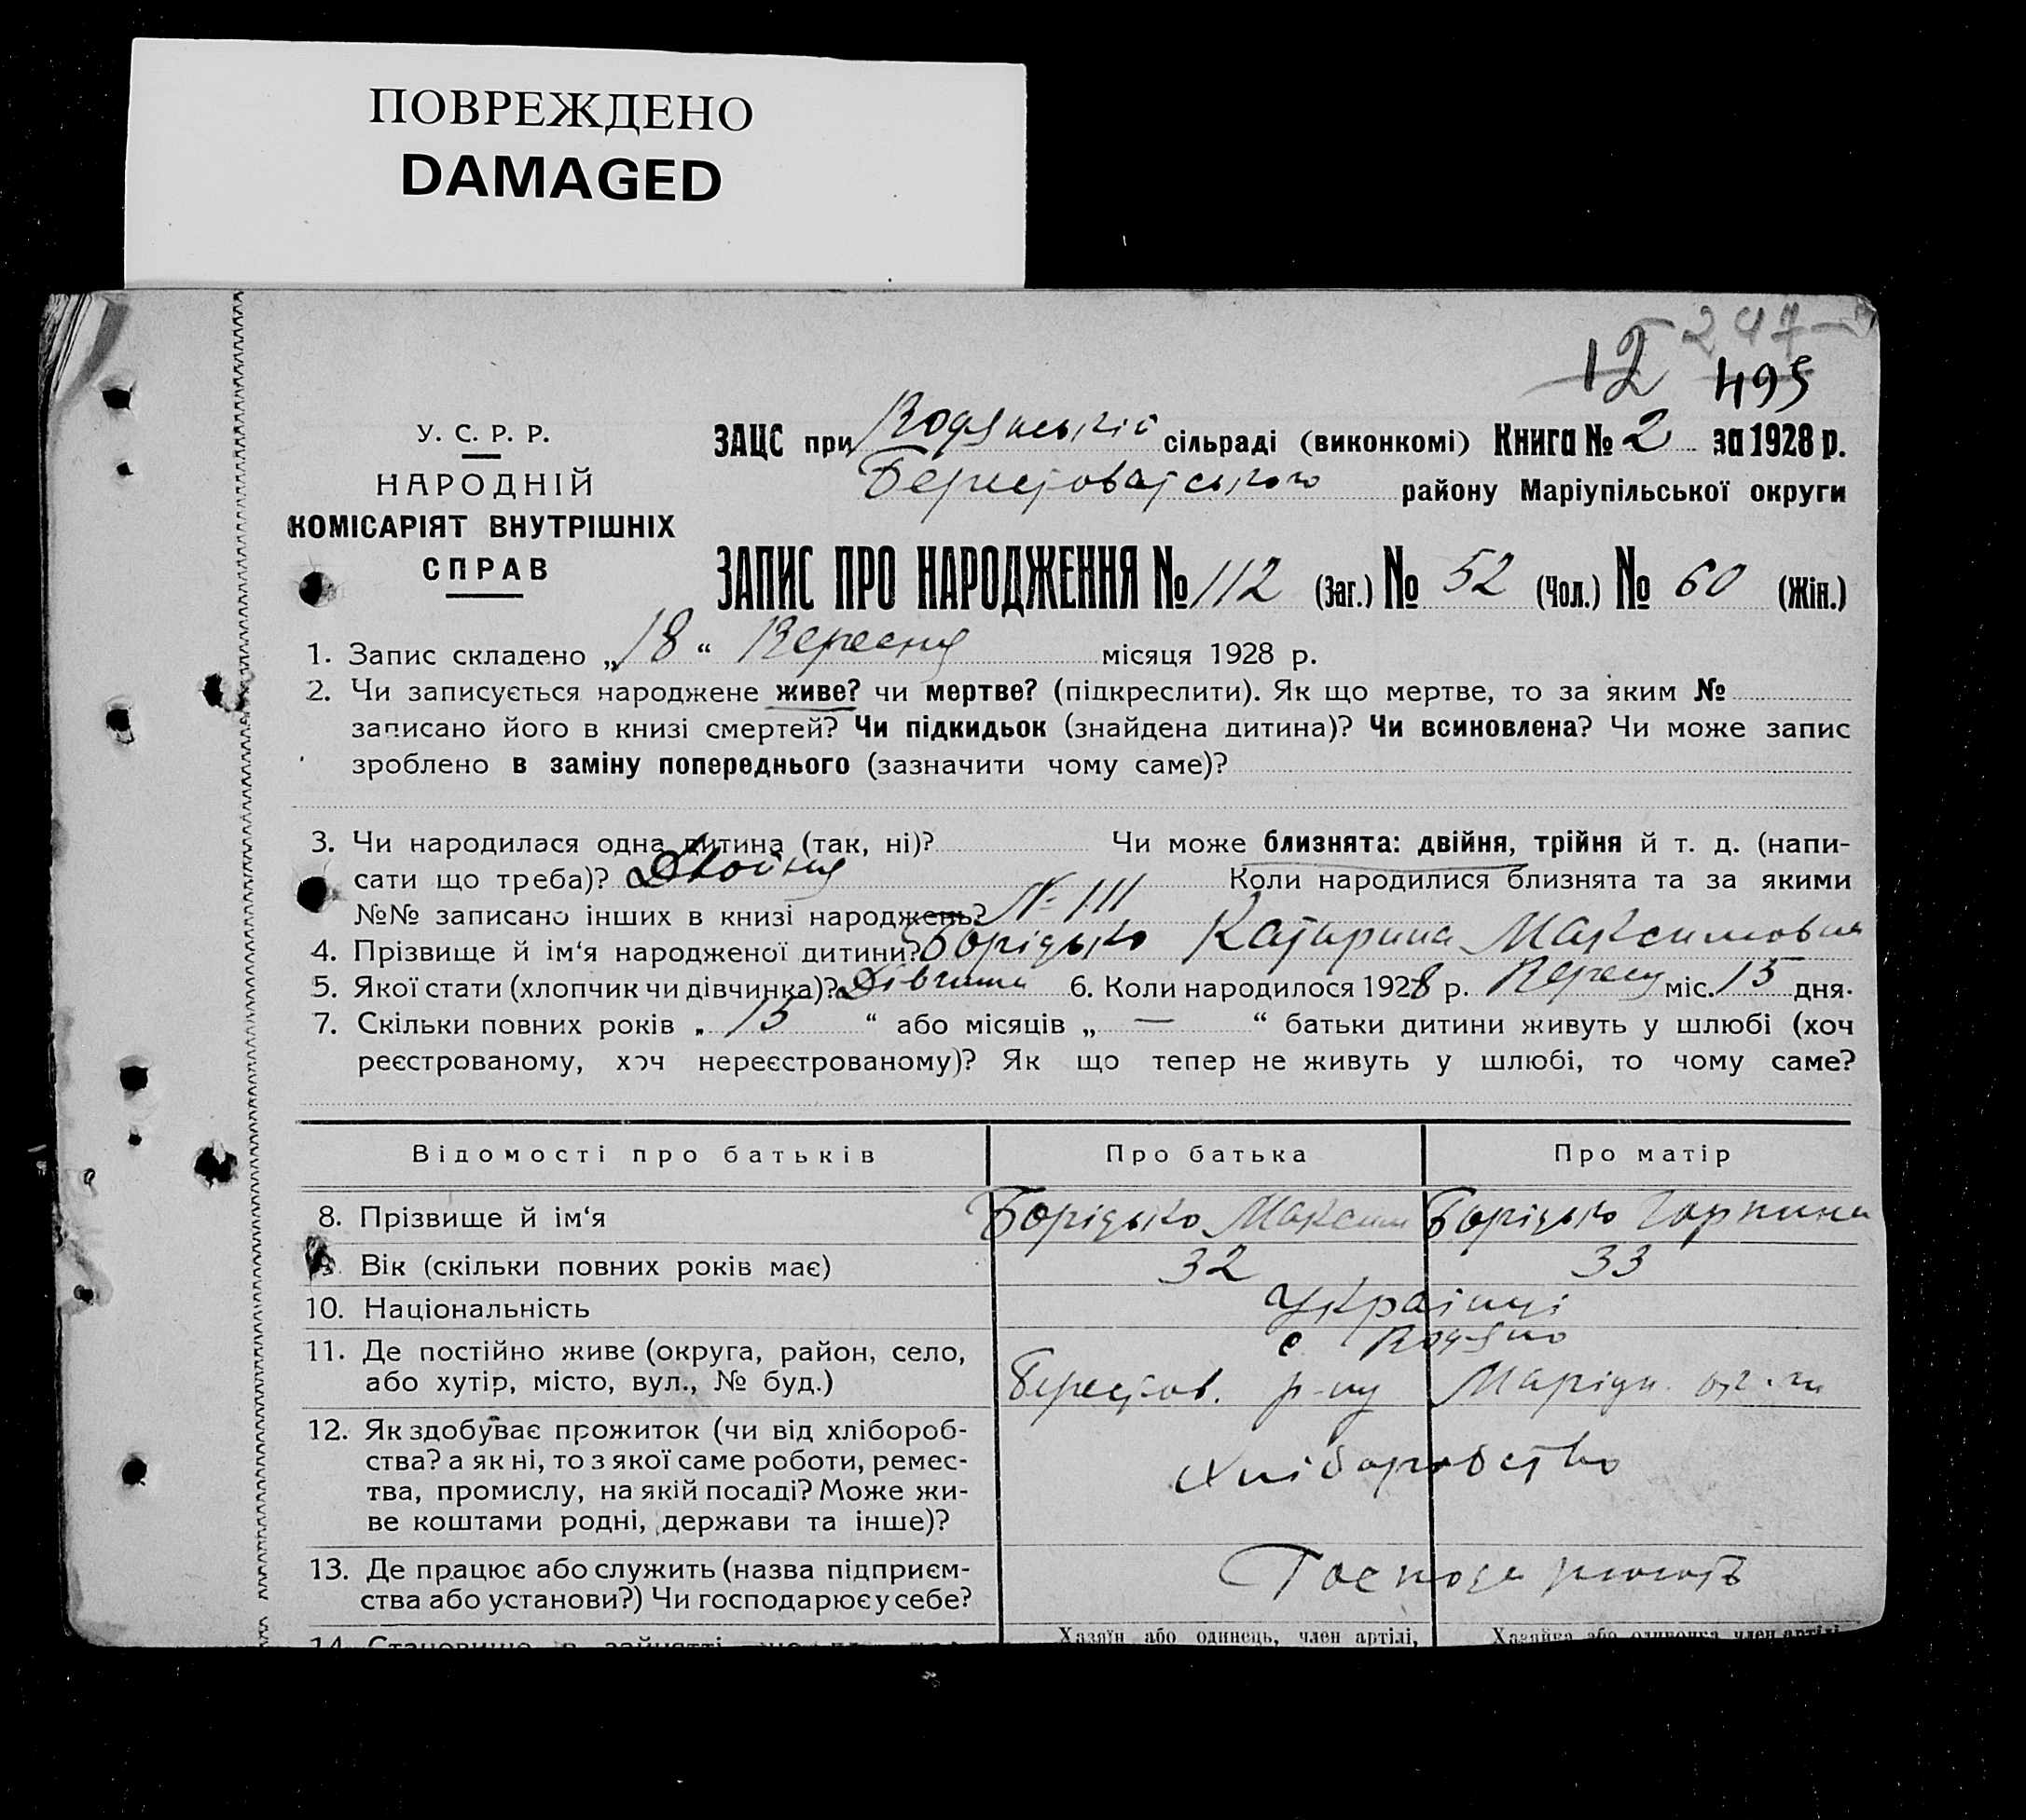 ПОВРЕЖДЕНО
DAMAGED
247
12 495
У. С. Р. Р.
НАРОДНІЙ
КОМІСАРІЯТ ВНУТРІШНІХ
СПРАВ
ЗАЦС при Водянській сільраді (виконкомі) Книга № 2 за 1928 р.
Берестоватського району Маріупільської округи
ЗАПИС ПРО НАРОДЖЕННЯ № 112 (Заг.) № 52 (Чол.) № 60 (Жін.)
1. Запис складено „18“ Вересня місяця 1928 р.
2. Чи записується народжене живе? чи мертве? (підкреслити). Як що мертве, то за яким №
записано його в книзі смертей? Чи підкидьок (знайдена дитина)? Чи всиновлена? Чи може запис
зроблено в заміну попереднього (зазначити чому саме)?
3. Чи народилася одна дитина (так, ні)? Чи може близнята: двійня, трійня й т. д. (напи-
сати що треба)? Двойня Коли народилися близнята та за якими
№№ записано інших в книзі народжень? № 111
4. Прізвище й ім‘я народженої дитини? Борідько Катирина Максимовна
5. Якої стати (хлопчик чи дівчинка)? Дівчина 6. Коли народилося 1928 р. Вересня міс. 15 дня.
7. Скільки повних років „ 15 “ або місяців „ — “ батьки дитини живуть у шлюбі (хоч
реєстрованому, хоч нереєстрованому)? Як що тепер не живуть у шлюбі, то чому саме?
Відомості про батьків Про батька Про матір
8. Прізвище й ім‘я Борідько Максим Борідько Горпина
9. Вік (скільки повних років має) 32 33
10. Національність Українці
11. Де постійно живе (округа, район, село, с. Водяно
або хутір, місто, вул., № буд.) Берестов. р-ну Маріуп. окр-ги
12. Як здобуває прожиток (чи від хлібороб-
ства? а як ні, то з якої саме роботи, ремес- Хліборобство
тва, промислу, на якій посаді? Може жи-
ве коштами родні, держави та інше)?
13. Де працює або служить (назва підприєм- Господарюють
ства або установи?) Чи господарює у себе?
14. Становище в зайнятті Хазяїн або одинець, член артілі, Хазяйка або одиночка член артілі